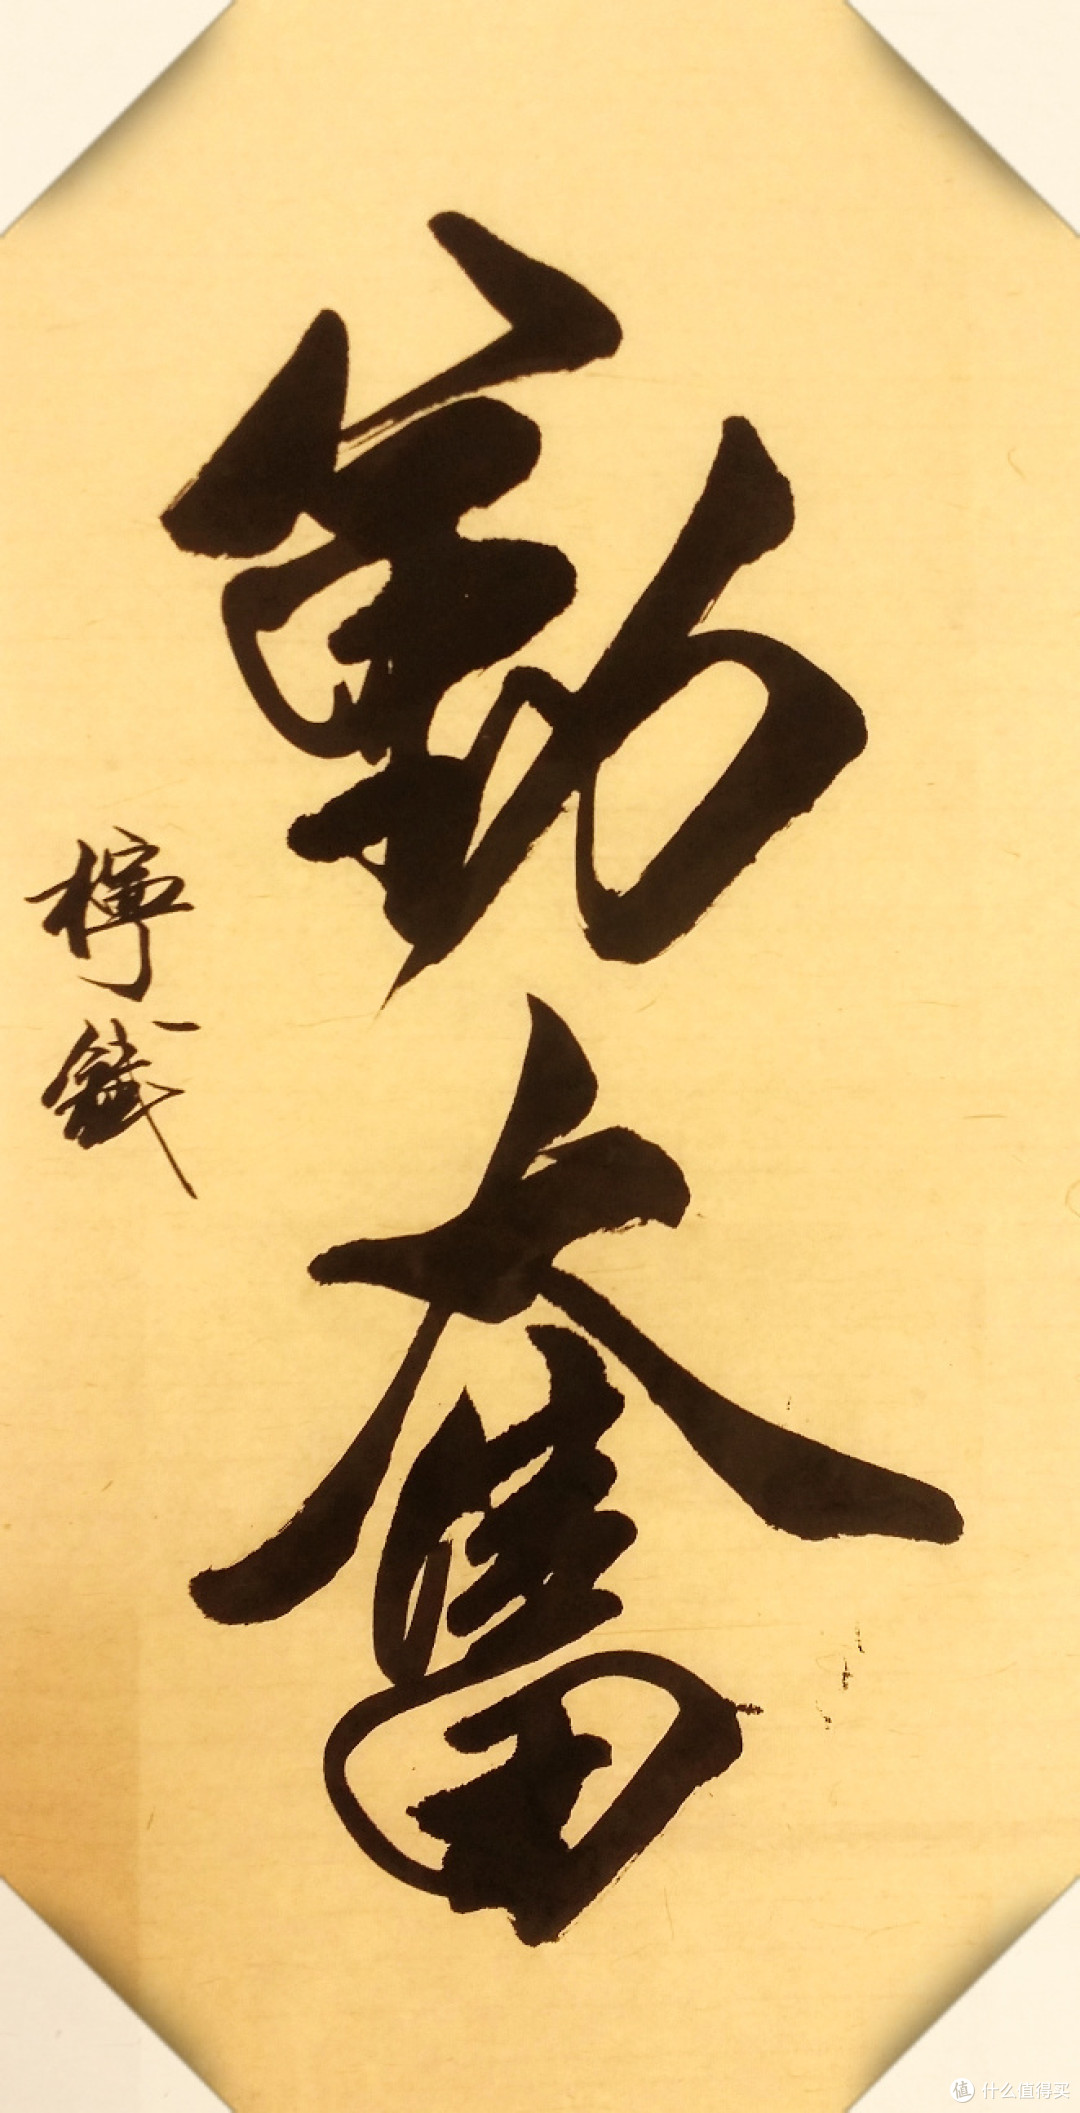 勤奮
檸
什么值得买